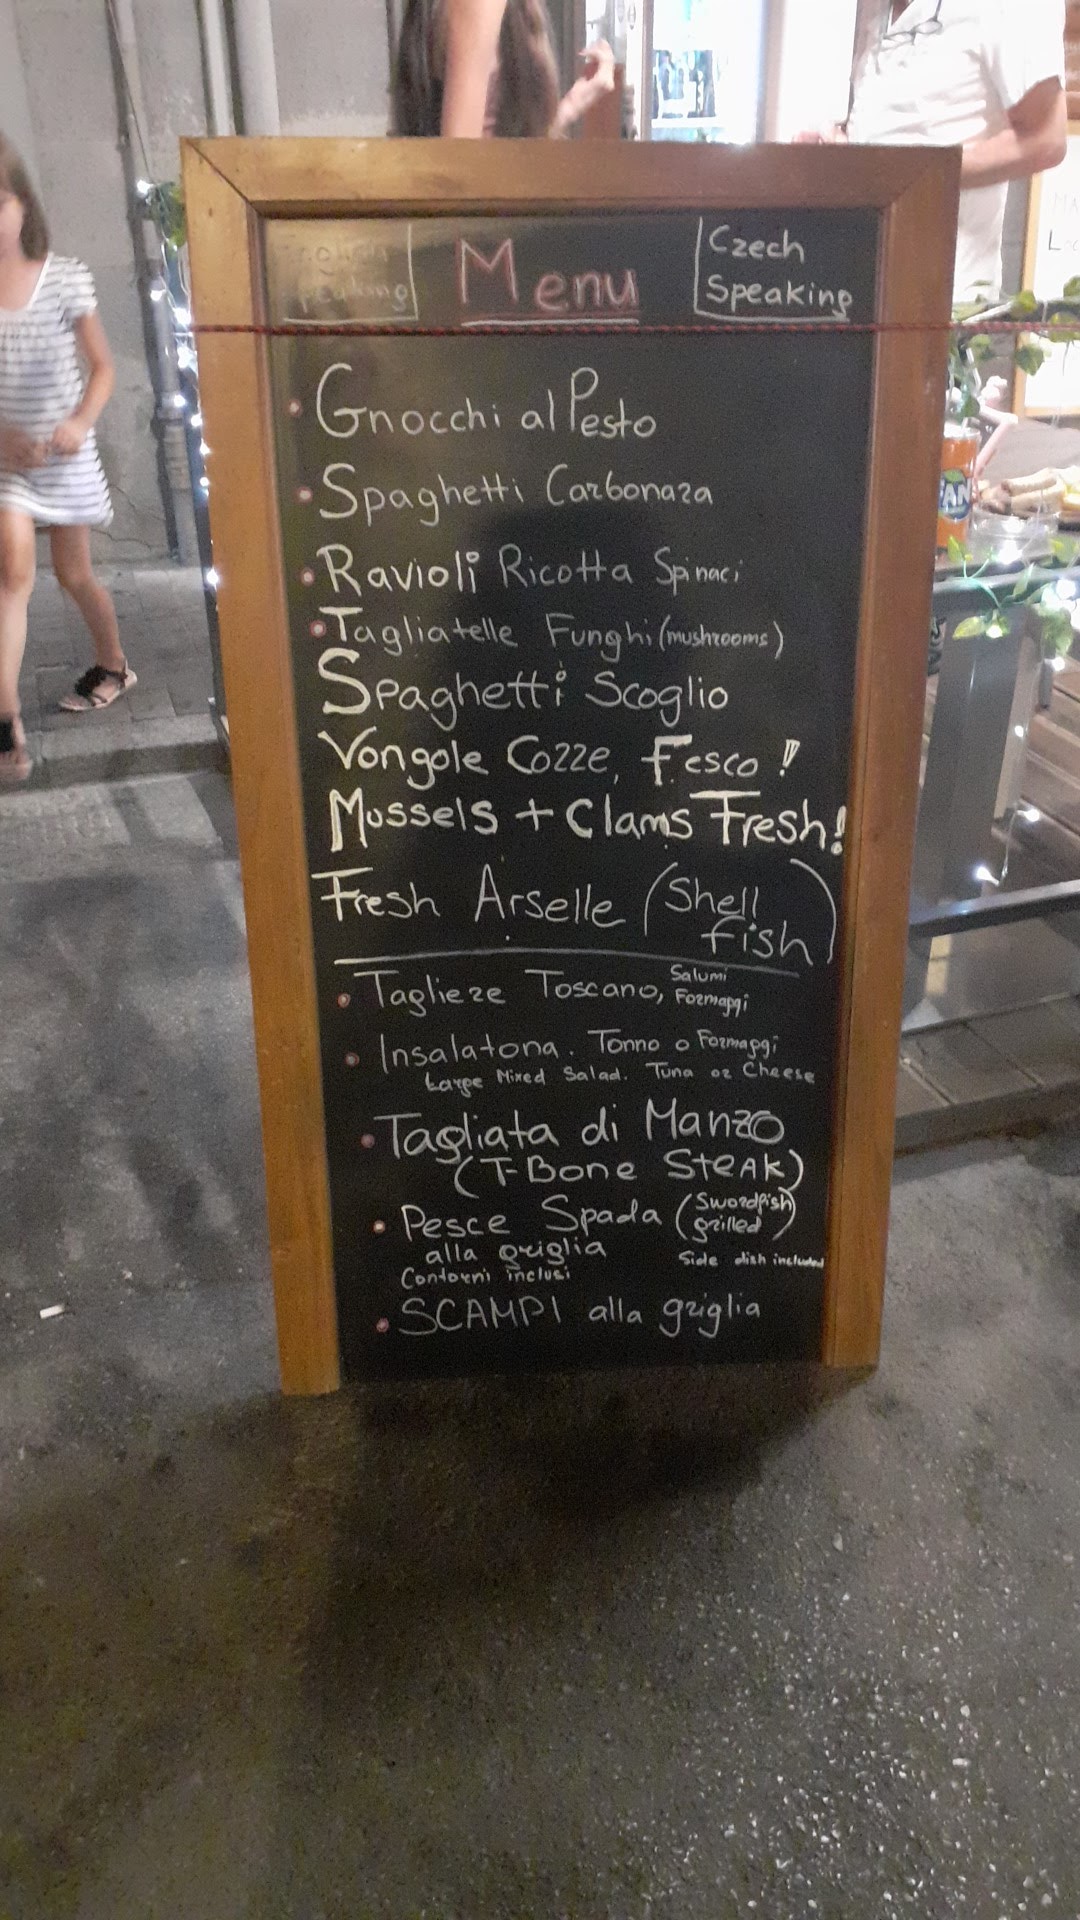 Menu
Czech
Speaking
Gnocchi al Pesto
Spaghetti Carbonara
Ravioli Ricotta Spinaci
Tagliatelle Funghi (mushrooms)
Spaghetti Scoglio
Vongole Cozze, Fresco!
Mussels + Clams Fresh!
Fresh Arselle (Shell
fish)
Tagliere Toscano, Salumi
Formaggi
Insalatona. Tonno o Formaggi
Large Mixed Salad. Tuna or Cheese
Tagliata di Manzo
(T-Bone Steak)
Pesce Spada (Swordfish
grilled)
alla griglia
Side dish included
Contorni inclusi
SCAMPI alla griglia